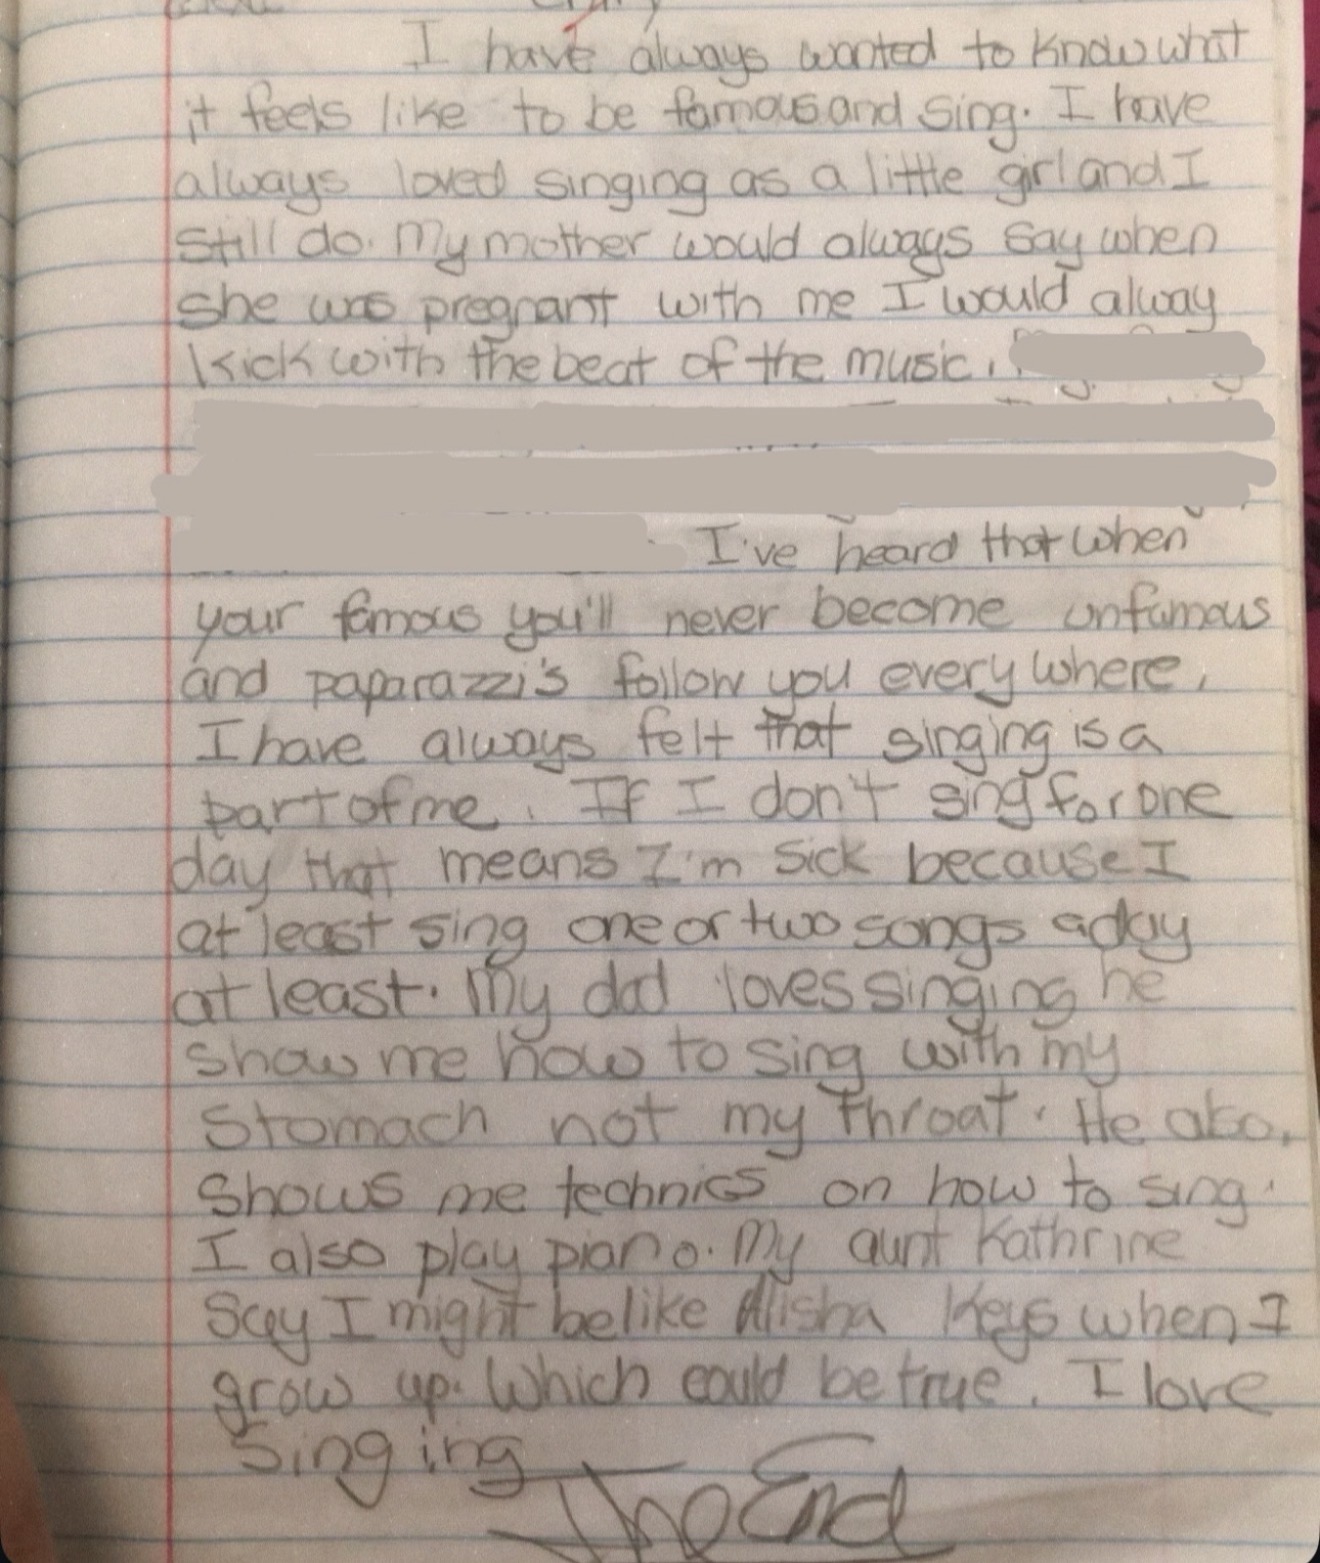 I have always wanted to know what
it feels like to be famous and sing. I have
always loved singing as a little girl and I
still do. My mother would always say when
she was pregnant with me I would alway
kick with the beat of the music.
I've heard that when
your famous you'll never become unfamous
and paparazzi's follow you every where.
I have always felt that singing is a
part of me. If I don't sing for one
day that means I'm sick because I
at least sing one or two songs a day
at least. My dad loves singing he
show me how to sing with my
stomach not my throat. He also,
shows me technics on how to sing.
I also play piano. My aunt Kathrine
Say I might be like Alisha Keys when I
grow up. Which could be true. I love
singing
The End